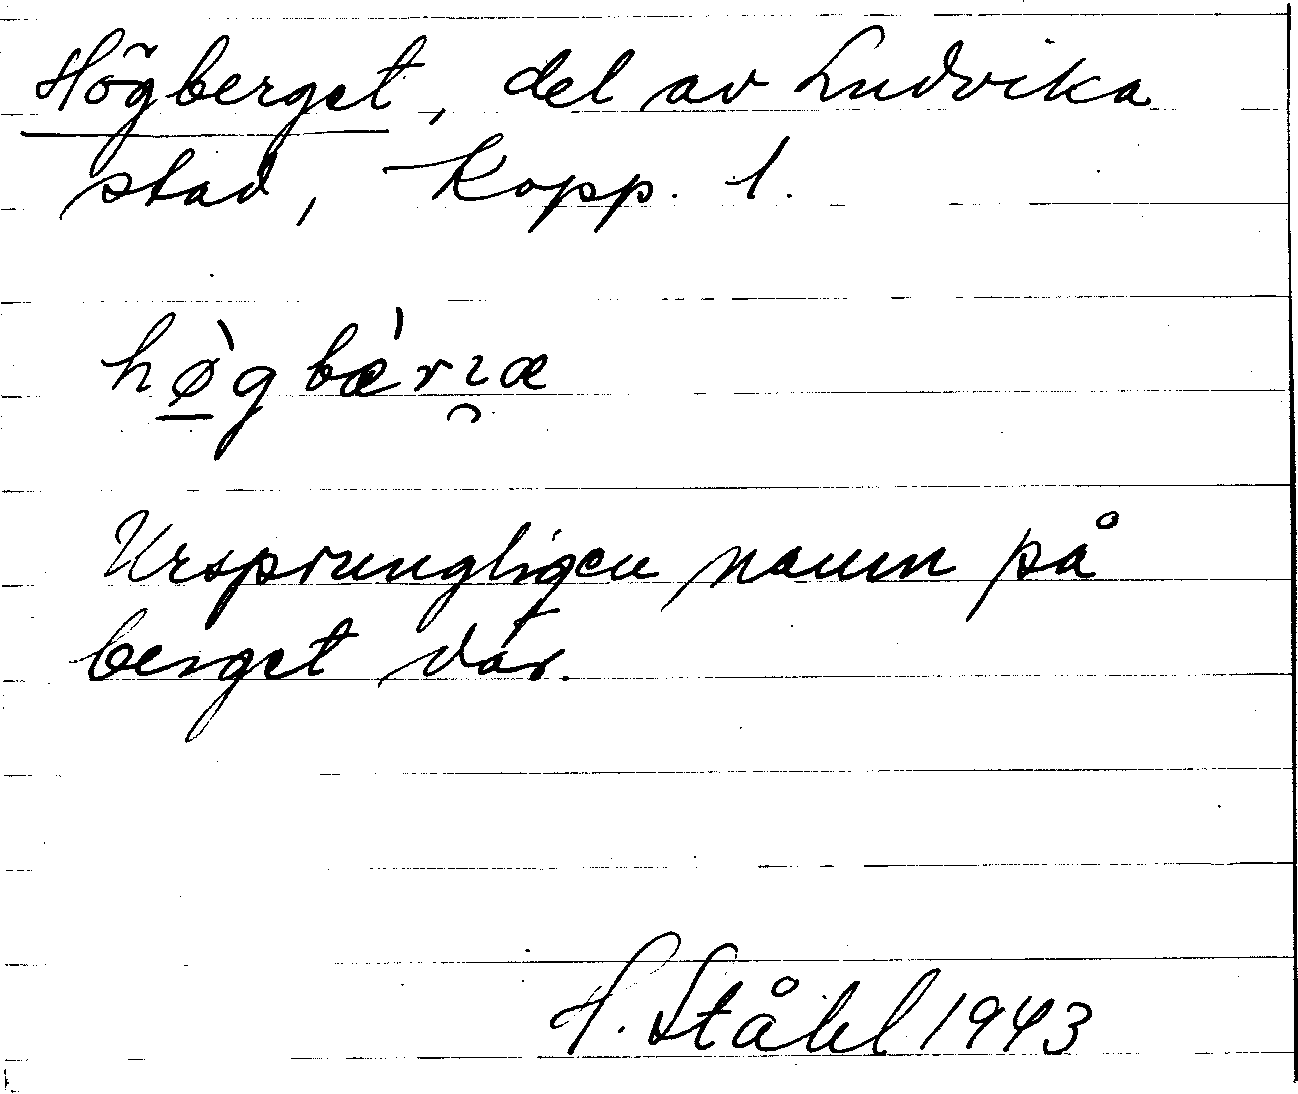 Högberget, del av Ludvika
stad, Kopp. l.
hø̲̀gbæ̀rı̯æ
Ursprungligen namn på
berget där.
H. Ståhl 1943